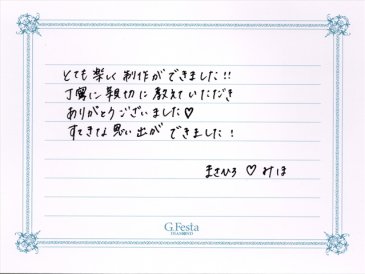 とても楽しく制作ができました!!
丁寧に親切に教えていただき
ありがとうございました♡
すてきな思い出ができました!
まさひろ ♡ みほ
G.Festa
DIAMOND